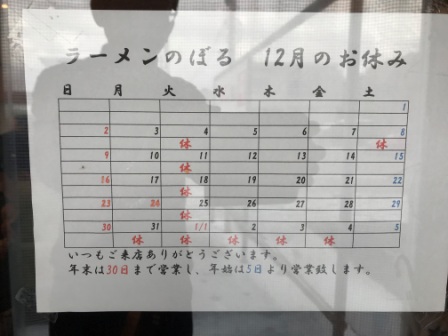 ラーメンのぼる 12月のお休み
日 月 火 水 木 金 土
1
2 3 4 5 6 7 8
休 休
9 10 11 12 13 14 15
休
16 17 18 19 20 21 22
休
23 24 25 26 27 28 29
休
30 31 1/1 2 3 4 5
休 休 休 休 休
いつもご来店ありがとうございます。
年末は30日まで営業し、年始は5日より営業致します。